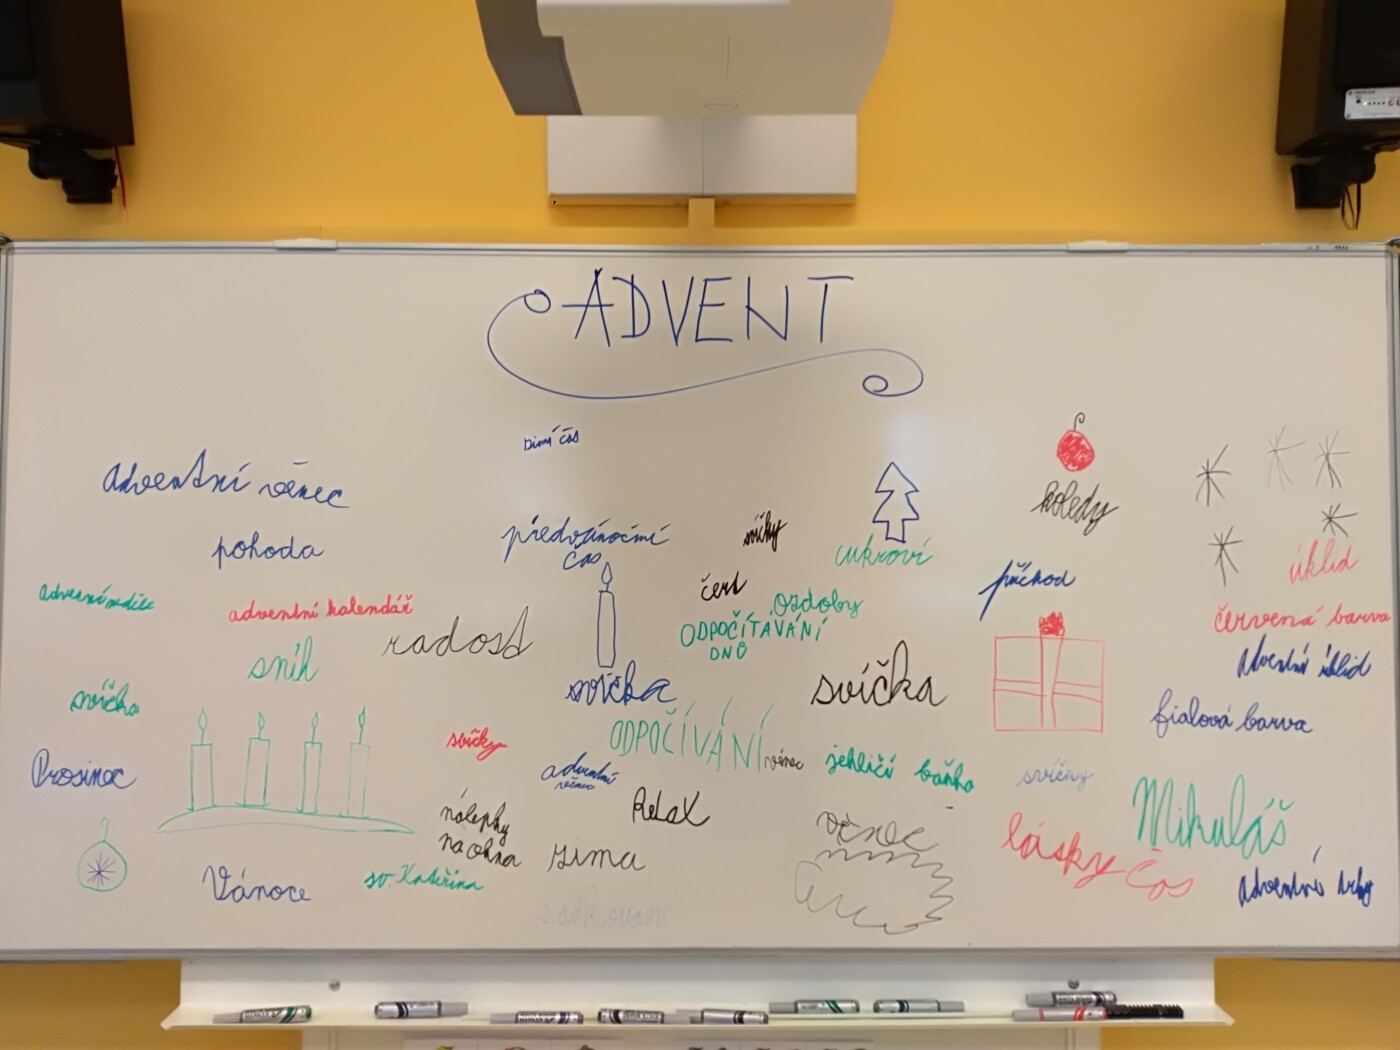 ADVENT
zimní čas
adventní věnec
koledy
pohoda
předvánoční
čas
svíčky
cukroví
úklid
příchod
čert
ozdoby
adventní neděle
adventní kalendář
radost
ODPOČÍTÁVÁNÍ
DNŮ
červená barva
sníh
adventní úklid
svíčka
svíčka
svíčka
fialová barva
svíčky
ODPOČÍVÁNÍ
věnec
jehličí
baňka
svíčny
Prosinec
adventní
věnec
Mikuláš
nálepky
na okna
Relax
věnec
lásky čas
zima
Vánoce
sv. Kateřina
adventní trhy